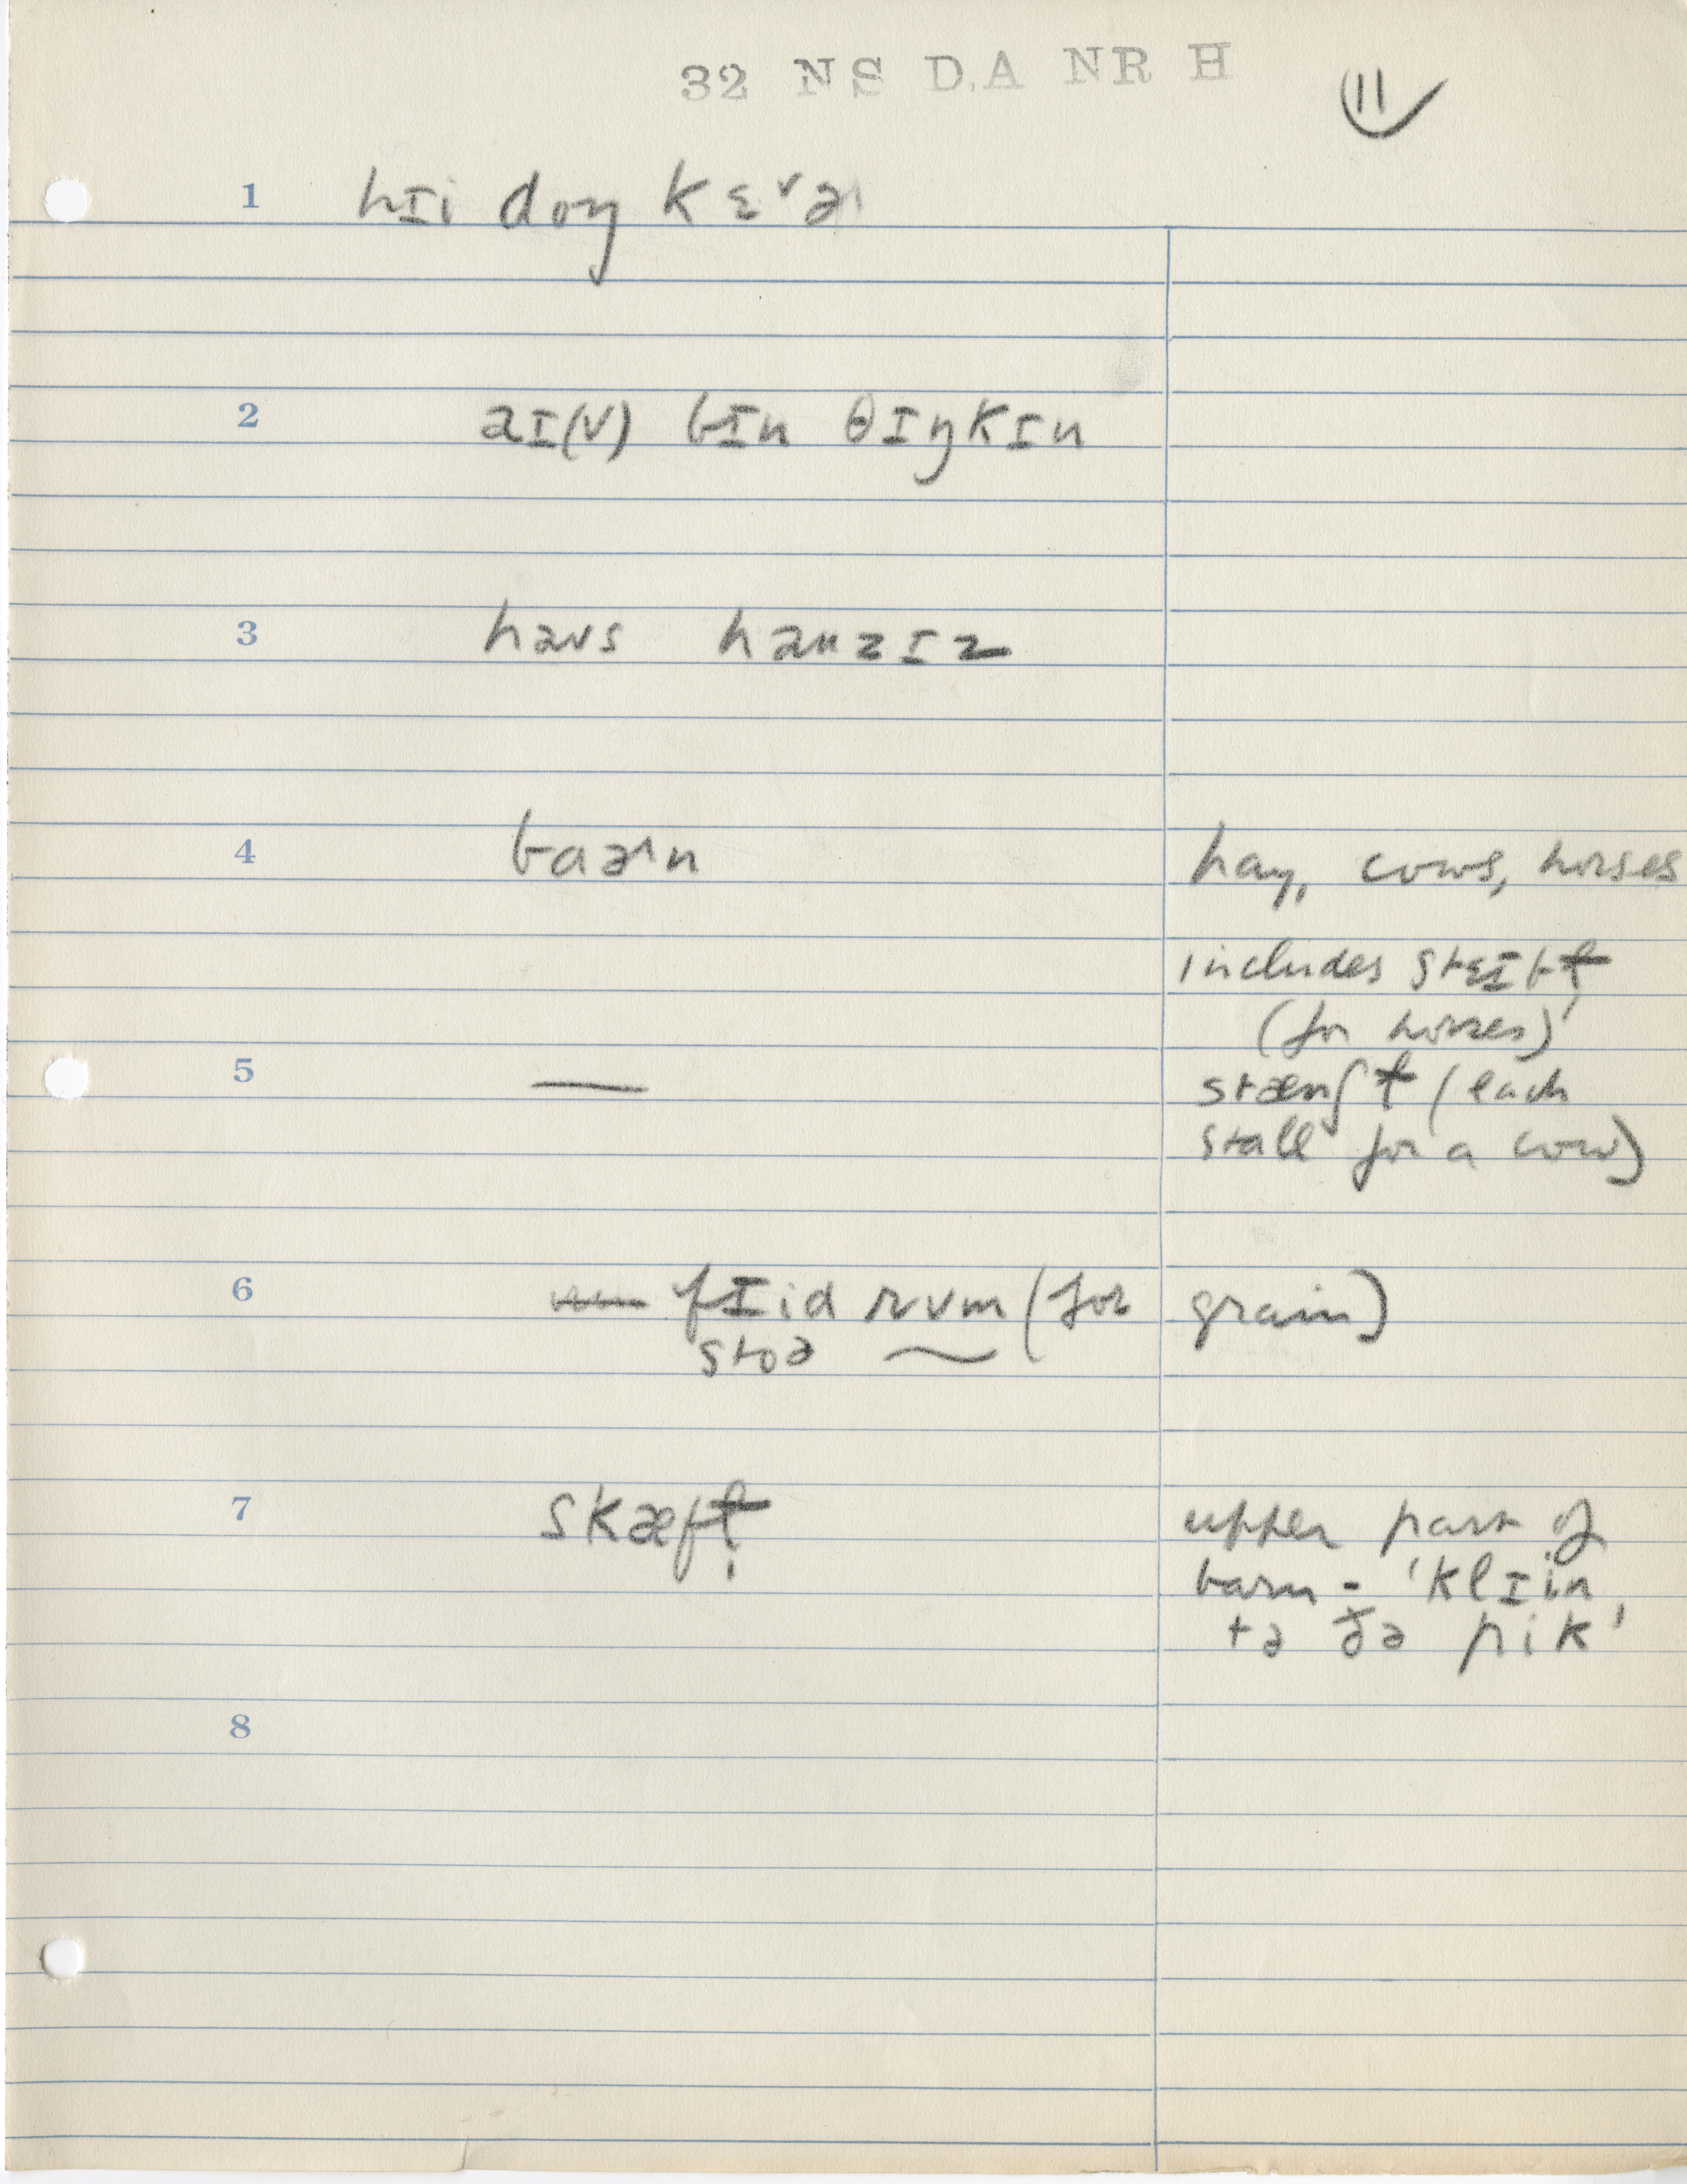 32 NS D.A NR H
11
1 hɪi doŋ kɛˇə
2 aɪ(v) bɪn θɪŋkɪn
3 haus hauzɪz
4 baə˞n hay, cows, horses
includes stɛɪbɫ̩
(for horses)
5 — stænʃɫ (each
stall for a cow)
6 fɪid rum (for grain)
stoə ~
7 skæfɫ̩ upper part of
barn - 'klɪin
tə ðə pik'
8